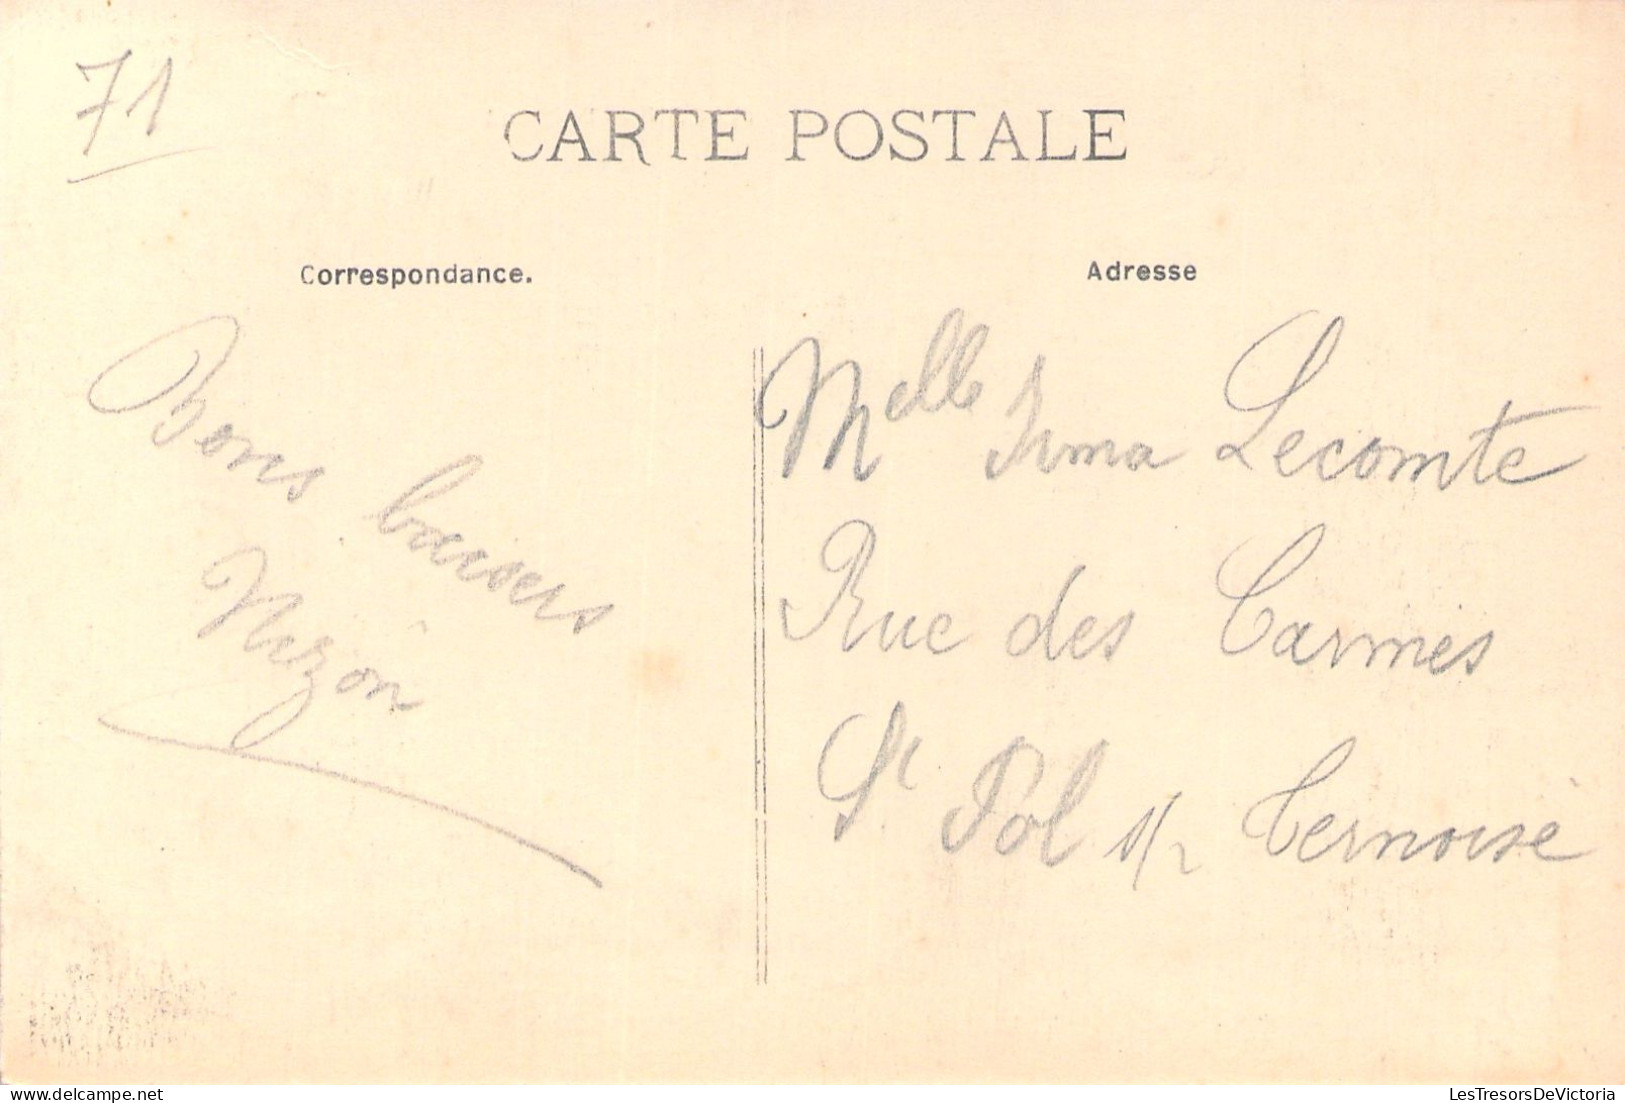 71
CARTE POSTALE
Correspondance.
Bons baisers
Adresse
Melle Irma Lecomte
Rue des Carmes
St Pol s/ Ternoise
LesTresorsDeVictoria